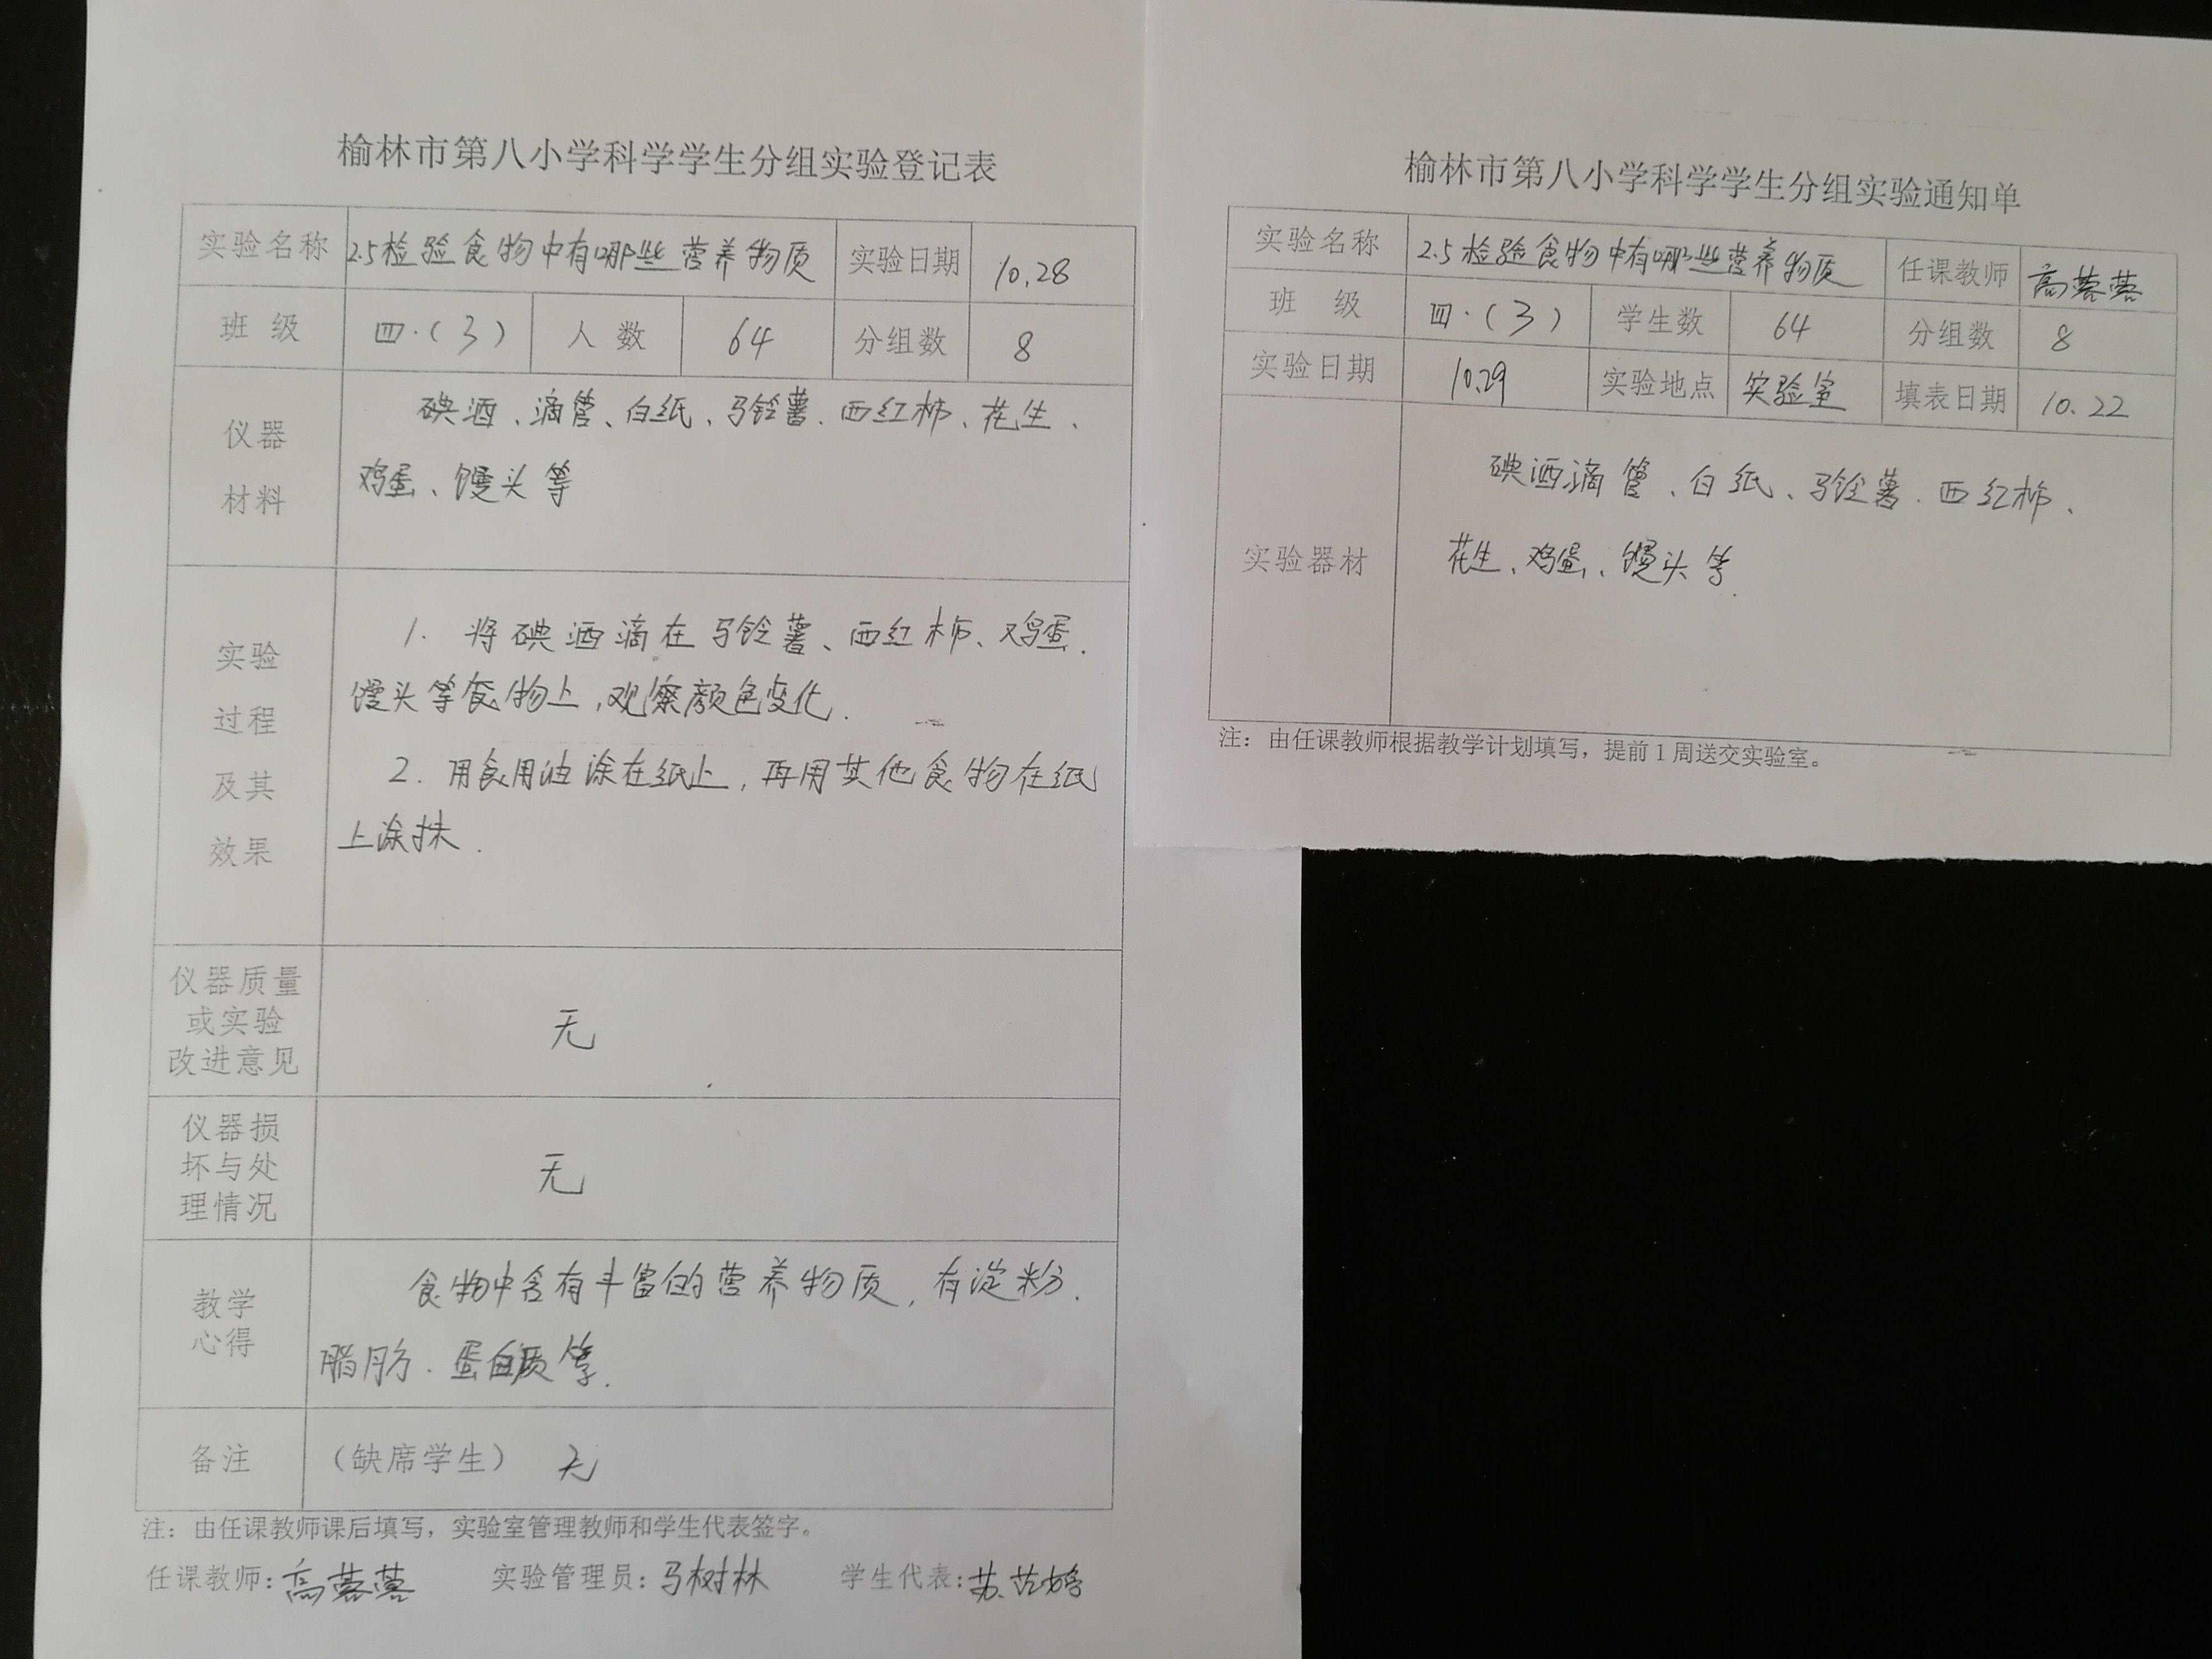 榆林市第八小学科学学生分组实验登记表
实验名称 2.5检验食物中有哪些营养物质 实验日期 10.28
班 级 四.(3) 人 数 64 分组数 8
仪器
材料
碘酒、滴管、白纸、马铃薯.西红柿、花生、
鸡蛋、馒头等
实验
过程
及其
效果
1. 将碘酒滴在马铃薯、西红柿、鸡蛋.
馒头等食物上,观察颜色变化.
2. 用食用油涂在纸上,再用其他食物在纸
上涂抹.
仪器质量
或实验
改进意见
无
仪器损
坏与处
理情况
无
教学
心得
食物中含有丰富的营养物质,有淀粉.
脂肪.蛋白质等.
备注 (缺席学生) 无
注：由任课教师课后填写，实验室管理教师和学生代表签字。
任课教师：高蓉蓉 实验管理员：马树林 学生代表：苏
榆林市第八小学科学学生分组实验通知单
实验名称 2.5检验食物中有哪些营养物质 任课教师 高蓉蓉
班 级 四.(3) 学生数 64 分组数 8
实验日期 10.29 实验地点 实验室 填表日期 10.22
实验器材
碘酒滴管、白纸、马铃薯.西红柿、
花生、鸡蛋、馒头等.
注：由任课教师根据教学计划填写，提前1周送交实验室。